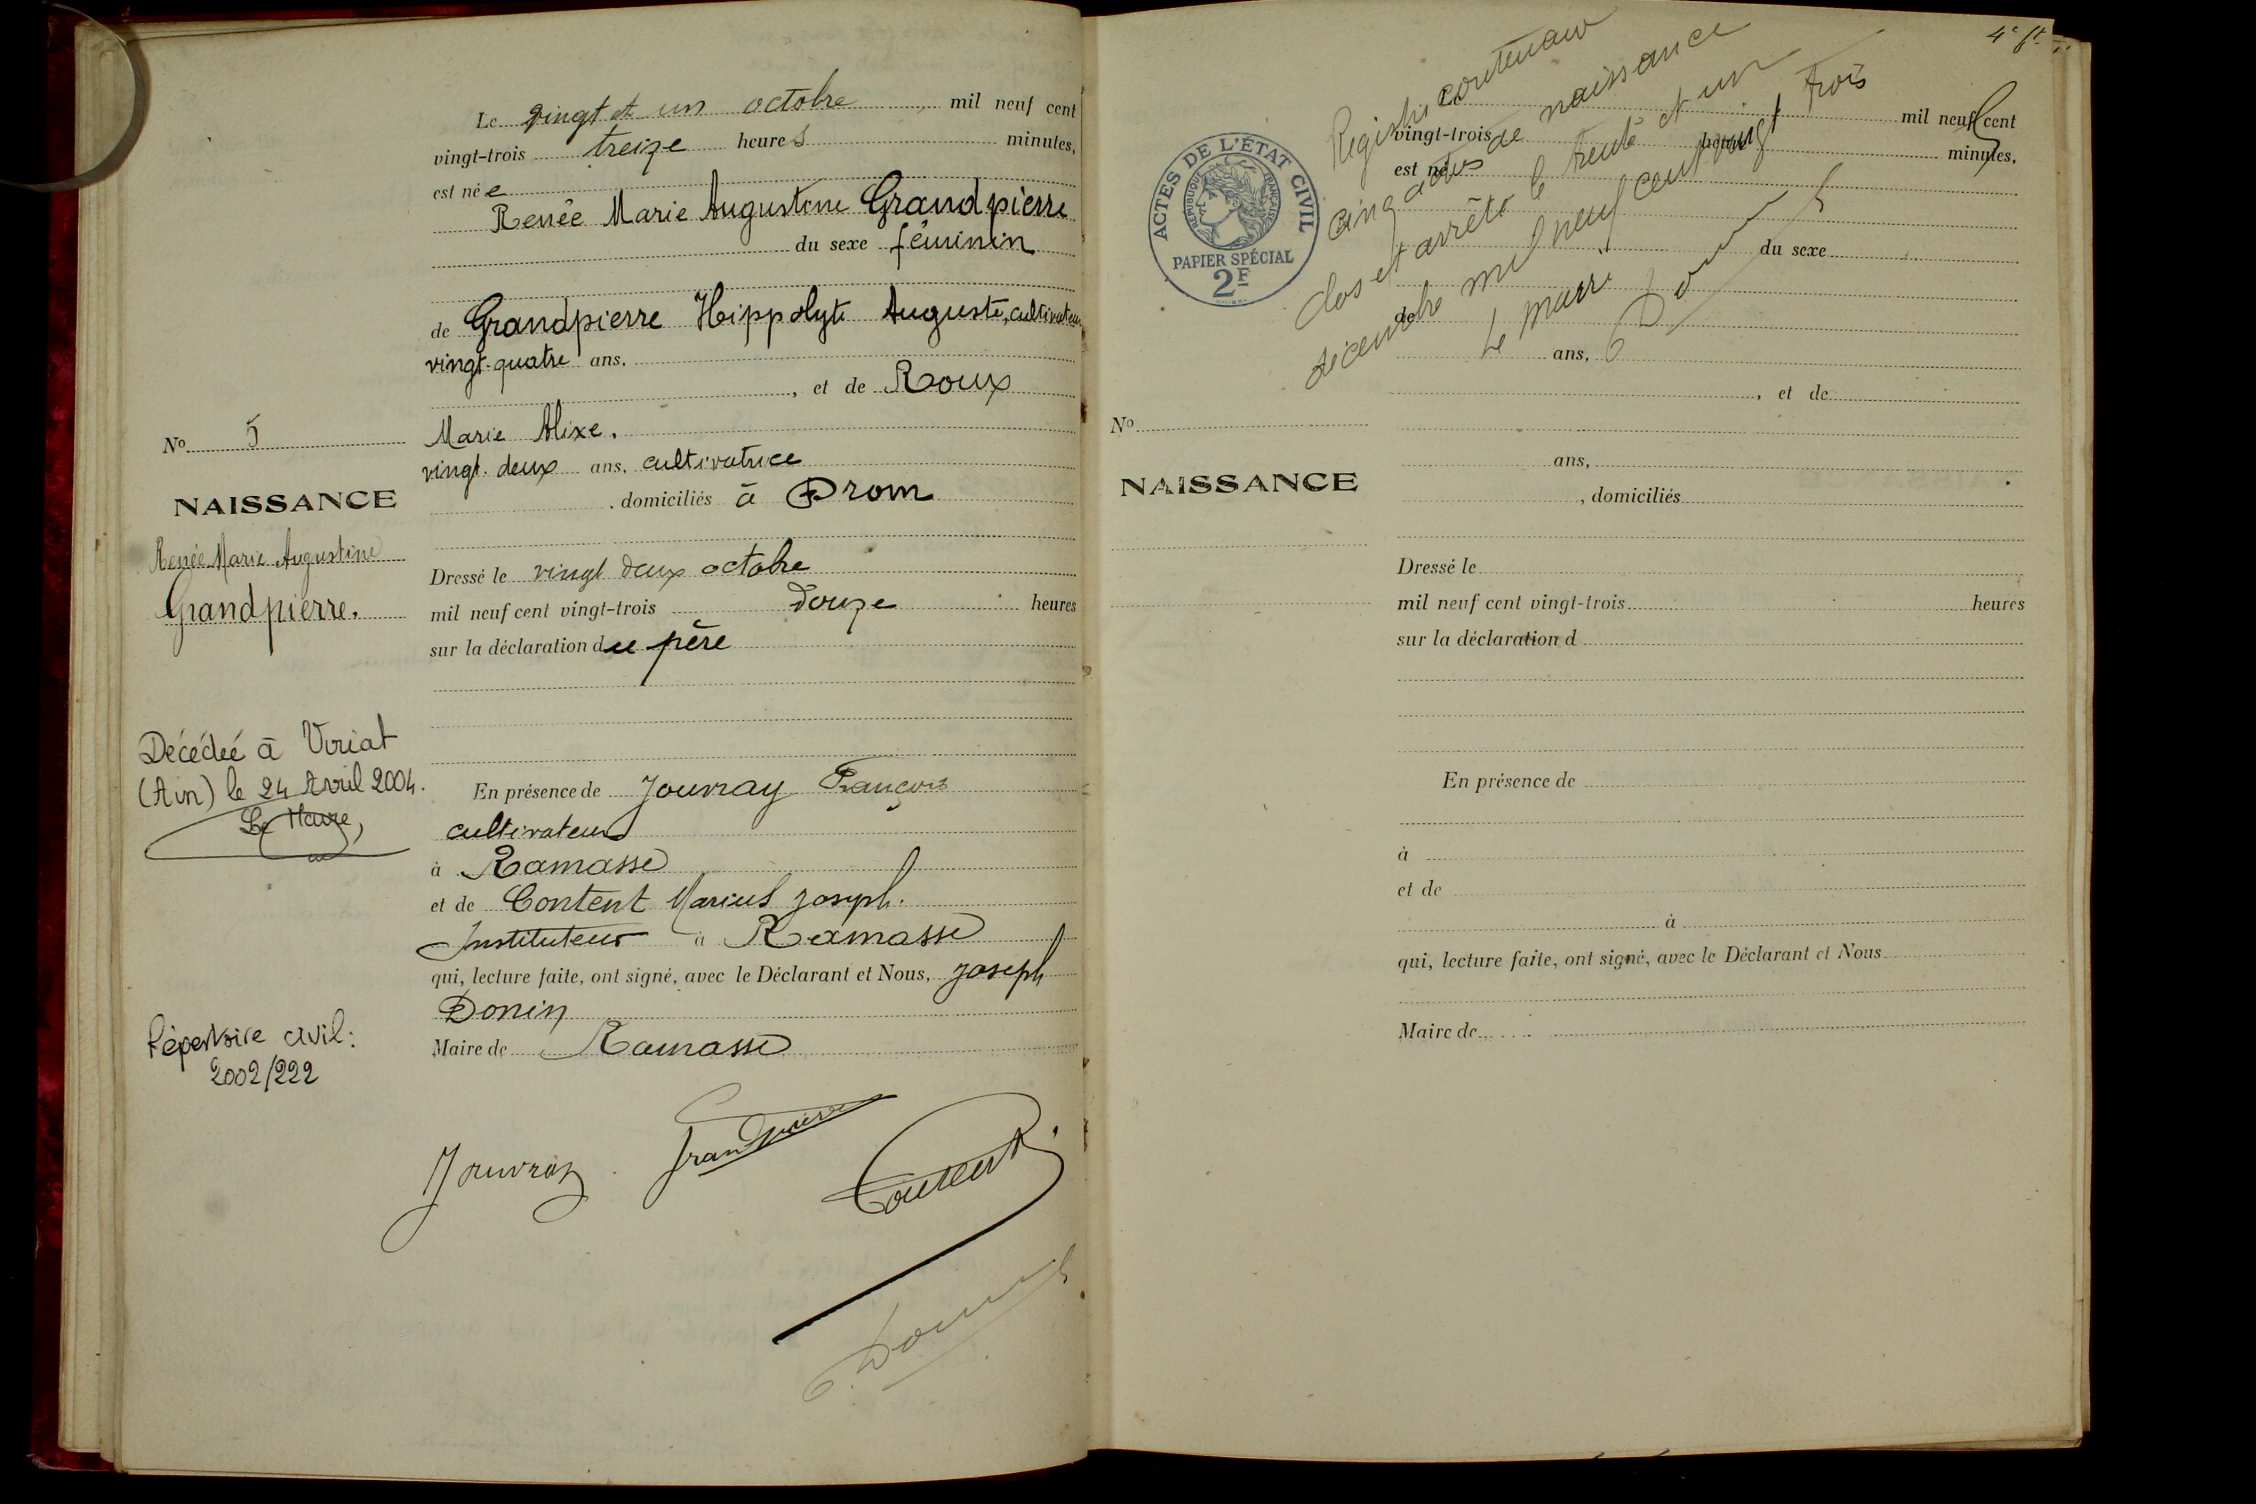 Le vingt et un octobre, mil neuf cent
vingt-trois treize heures minutes,
est née
Renée Marie Augustine Grandpierre
du sexe féminin
de Grandpierre Hippolyte Auguste, cultivateur
vingt-quatre ans,
, et de Roux
Marie Alixe.
vingt-deux ans, cultivatrice
, domiciliés à Drom
Dressé le vingt deux octobre
mil neuf cent vingt-trois douze heures
sur la déclaration du père
En présence de Jouvray François
cultivateur
à Ramasse
et de Content Marius Joseph.
Instituteur à Ramasse
qui, lecture faite, ont signé, avec le Déclarant et Nous, Joseph
Donin
Maire de Ramasse
Jouvray
Grandpierre
Content
Donin
No 5
NAISSANCE
Renée Marie Augustine
Grandpierre.
Décédée à Viriat
(Ain) le 24 Avril 2004.
Le Maire,
Répertoire civil:
2002/222
4e ft
ACTES DE L'ÉTAT CIVIL
RÉPUBLIQUE FRANÇAISE
PAPIER SPÉCIAL
2F
Registre contenant
cinq actes de naissance
clos et arrêté le trente et un
décembre mil neuf cent vingt trois
Le maire
Donin
Le mil neuf cent
vingt-trois heures minutes,
est né
du sexe
de
ans,
, et de
ans,
, domiciliés
No
NAISSANCE
Dressé le
mil neuf cent vingt-trois heures
sur la déclaration d
En présence de
à
et de
à
qui, lecture faite, ont signé, avec le Déclarant et Nous
Maire de